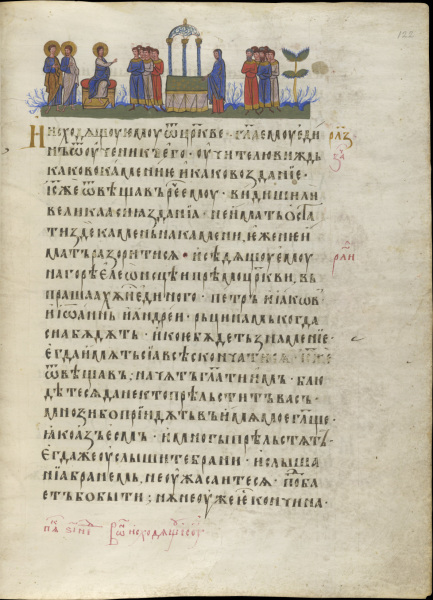 122
И исходѧщоу емоу ѿ цр҃кве · гл҃а емоу еди
нь ѿ оученикъ его · оучителю виждь
каково камение и каково здание ·
І҃с же ѿвѣщавь рече емоу · видиши ли
великаа сиа зданїа · не имать ѡста
ти зде камень на камени, иже не и
мать разоритисѧ · И сѣдѧщоу емоу
на горѣ елеѡнсцѣи прѣмо цр҃кви, въ
прашаахѫ единого · петръ и іакѡвь
и іѡаннь и андреи · рьци намь когда
сиа бѫдѫть · и кое бѫдеть знамение ·
егда имѫть сїа всѣ скончатисѧ · І҃с же
ѿвѣщавь · начѧть гл҃ати имь · блю
дѣтесѧ да не кто прѣльстить вась ·
мнози бо прїидѫть въ имѧ мое гл҃ще ·
ꙗко азъ есмь · и многы прѣльстѧть ·
егда же оуслышите брани · и слыша
нїа бранемь, не оужасаитесѧ · подоба
еть бо быти ; нѫ не оу же кончина ·